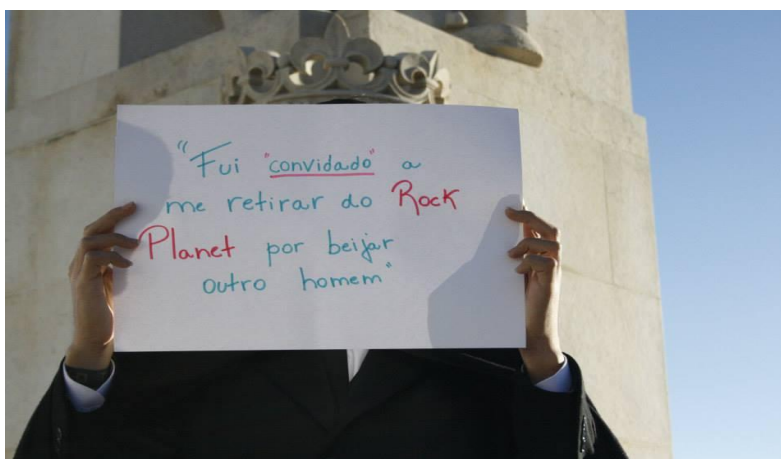 "Fui "convidado" a
me retirar do Rock
Planet por beijar
outro homem"